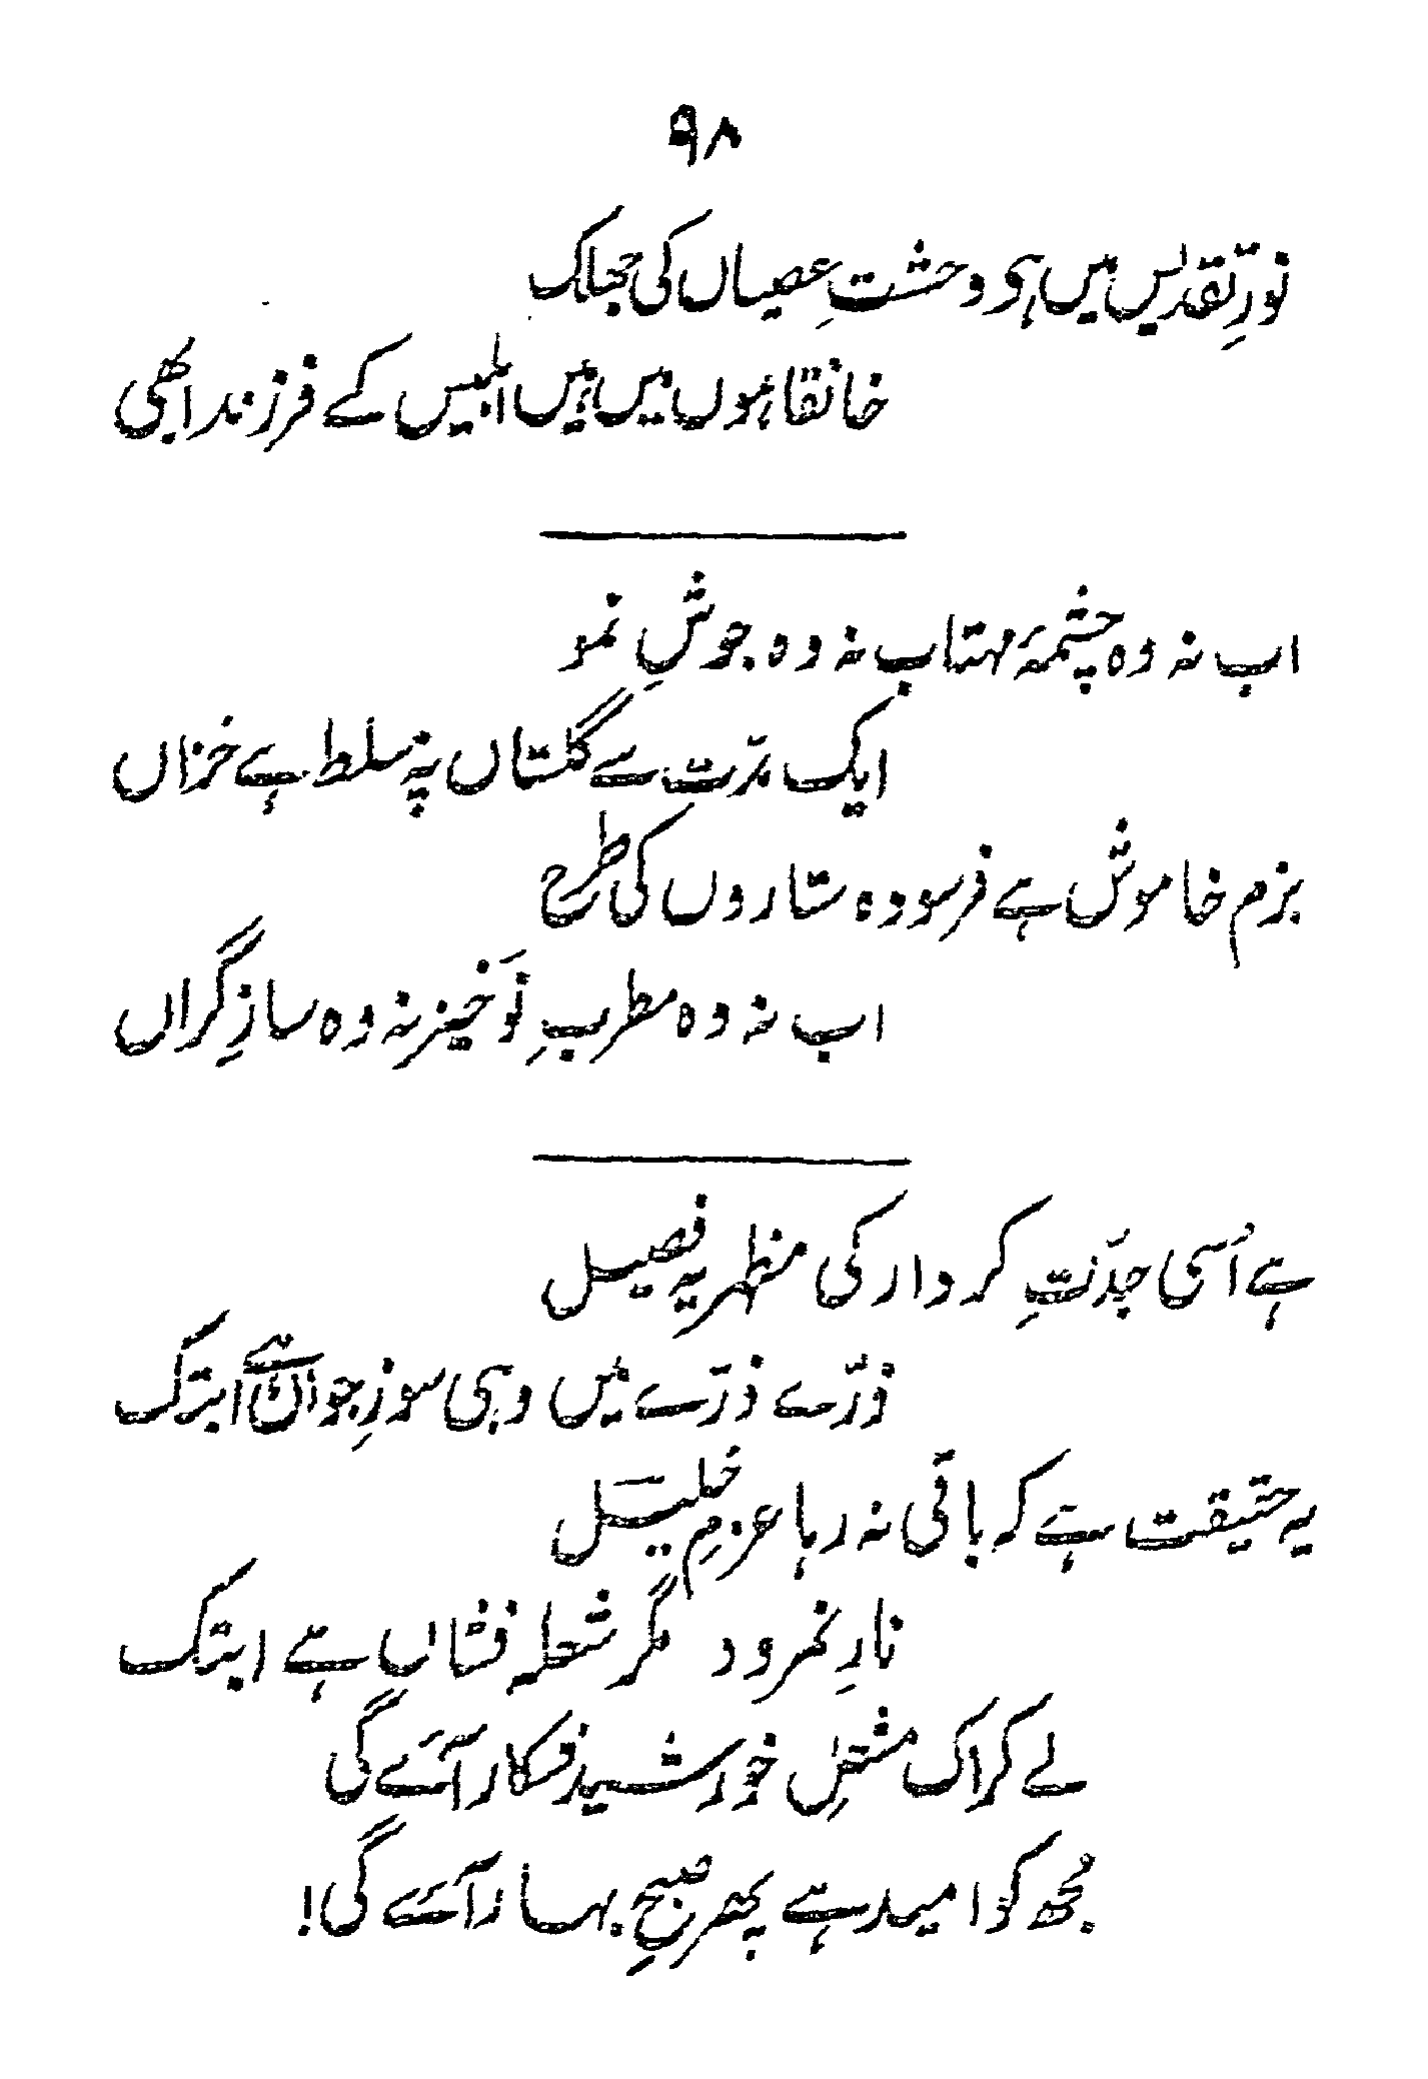 ۹۸
نورِ تقدیس میں ہی وحشتِ عصیاں کی جھلک
خانقاہوں میں ہیں ابلیس کے فرزند ابھی
اب نہ وہ چشمۂ مہتاب نہ وہ جوشِ نمو
ایک مدّت سے گلستاں پہ مسلط ہے خزاں
بزم خاموش ہے فرسودہ ستاروں کی طرح
اب نہ وہ مطربِ نَوخیز نہ وہ سازِ گراں
ہے اُسی جدّتِ کردار کی مظہر یہ فصیل
ذرّے ذرّے میں وہی سوزِ جواں ہے ابتک
یہ حقیقت ہے کہ باقی نہ رہا عزمِ خلیل
نارِ نمرود مگر شعلہ فشاں ہے ابتک
لے کر اک مشعلِ خورشید فکار آئے گی
مجھ کو امید ہے پھر صبحِ بہار آئے گی!